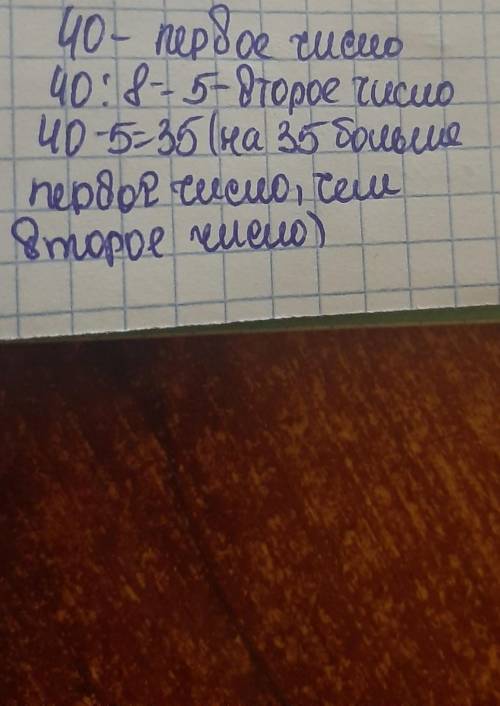 40- первое число
40:8=5-второе число
40-5=35(на 35 больше
первое число, чем
второе число)